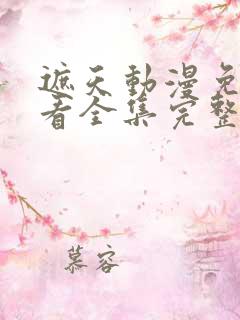 遮天動漫免
看全集完整
慕容